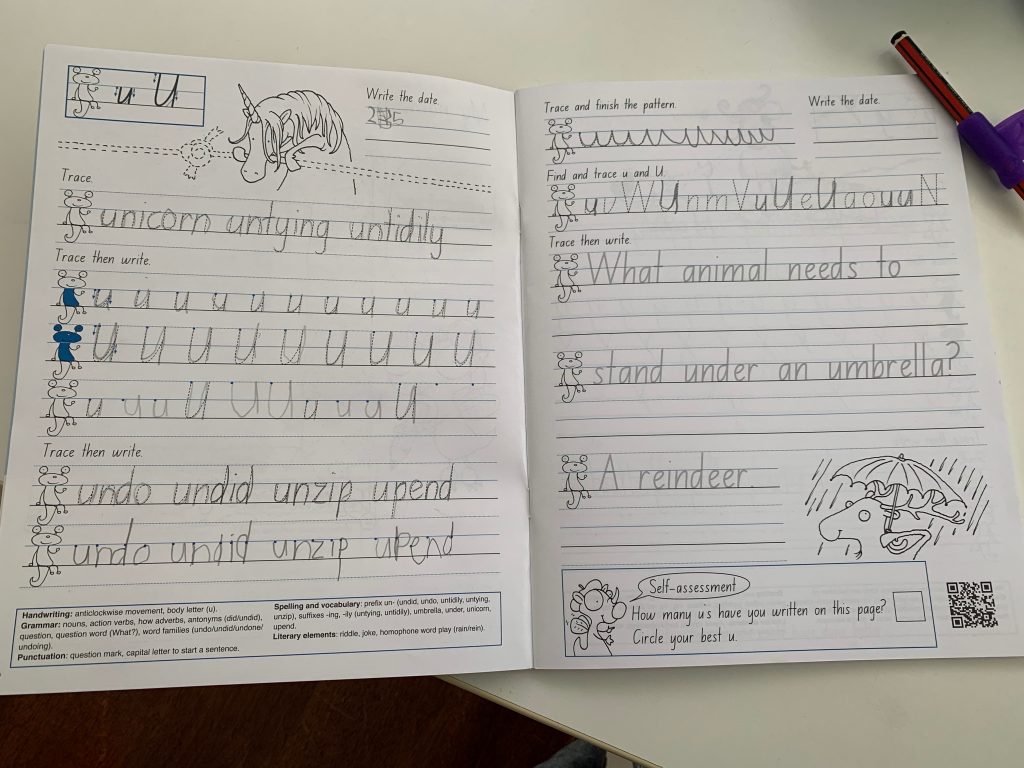 u U
Write the date.
Trace.
unicorn untying untidily
Trace then write.
u u u u u u u u u u u
U U U U U U U U U
u u u U U U u u u U
Trace then write.
undo undid unzip upend
undo undid unzip upend
Handwriting: anticlockwise movement, body letter (u).
Grammar: nouns, action verbs, how adverbs, antonyms (did/undid),
question, question word (What?), word families (undo/undid/undone/
undoing).
Punctuation: question mark, capital letter to start a sentence.
Spelling and vocabulary: prefix un- (undid, undo, untidily, untying,
unzip), suffixes -ing, -ily (untying, untidily), umbrella, under, unicorn,
upend.
Literary elements: riddle, joke, homophone word play (rain/rein).
Trace and finish the pattern.
Write the date.
Find and trace u and U.
u v W U n m V u U e U a o u u N
Trace then write.
What animal needs to
stand under an umbrella?
A reindeer.
Self-assessment
How many u's have you written on this page?
Circle your best u.